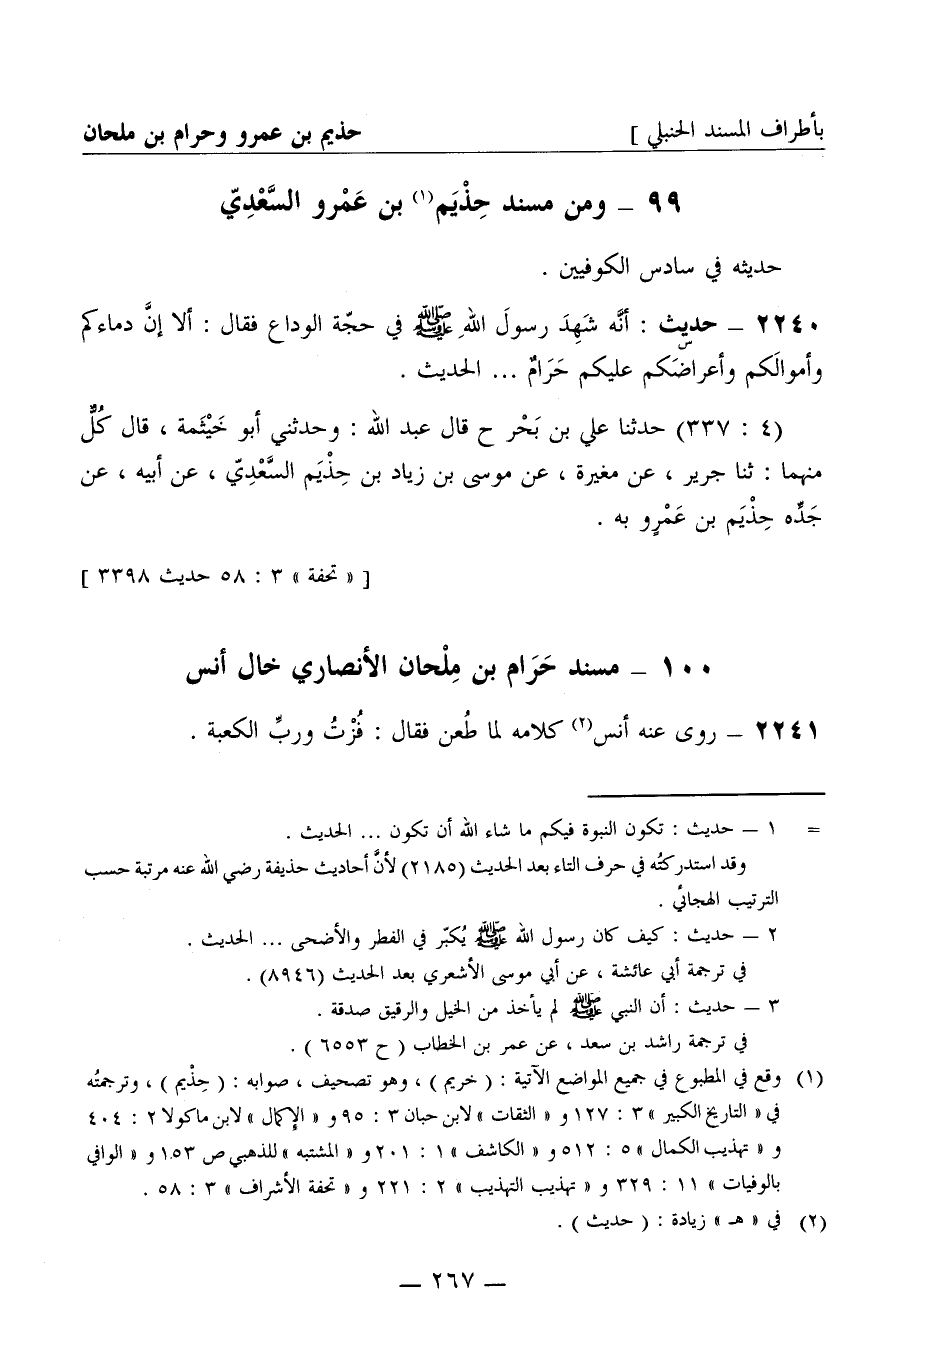 بأطراف المسند الحنبلي ] حذيم بن عمرو وحرام بن ملحان
٩٩ – ومن مسند حِذْيَم(١) بن عَمْرو السَّعْدِيّ
حديثه في سادس الكوفيين .
٢٢٤٠ – حديث : أنَّه شَهِدَ رسولَ اللهِ ﷺ في حجّة الوداع فقال : ألا إنَّ دماءكم
وأموالَكم وأعراضَكم عليكم حَرَامٌ ... الحديث .
(٤ : ٣٣٧) حدثنا علي بن بَحْر ح قال عبد الله : وحدثني أبو خَيْثَمة ، قال كُلٌّ
منهما : ثنا جرير ، عن مغيرة ، عن موسى بن زياد بن حِذْيَم السَّعْدِيّ ، عن أبيه ، عن
جَدِّه حِذْيَم بن عَمْرٍو به .
[ « تحفة » ٣ : ٥٨ حديث ٣٣٩٨ ]
١٠٠ – مسند حَرَام بن مِلْحان الأنصاري خال أنس
٢٢٤١ – روى عنه أنس(٢) كلامه لما طُعن فقال : فُزْتُ وربِّ الكعبة .
= ١ – حديث : تكون النبوة فيكم ما شاء الله أن تكون ... الحديث .
وقد استدركتُه في حرف التاء بعد الحديث (٢١٨٥) لأنَّ أحاديث حذيفة رضي الله عنه مرتبة حسب
الترتيب الهجائي .
٢ – حديث : كيف كان رسول الله ﷺ يُكبّر في الفطر والأضحى ... الحديث .
في ترجمة أبي عائشة ، عن أبي موسى الأشعري بعد الحديث (٨٩٤٦) .
٣ – حديث : أن النبي ﷺ لم يأخذ من الخيل والرقيق صدقة .
في ترجمة راشد بن سعد ، عن عمر بن الخطاب ( ح ٦٥٥٣ ) .
(١) وقع في المطبوع في جميع المواضع الآتية : ( خريم ) ، وهو تصحيف ، صوابه : ( حِذْيم ) ، وترجمتُه
في « التاريخ الكبير » ٣ : ١٢٧ و « الثقات » لابن حبان ٣ : ٩٥ و « الإكمال » لابن ماكولا ٢ : ٤٠٤
و « تهذيب الكمال » ٥ : ٥١٢ و « الكاشف » ١ : ٢٠١ و « المشتبه » للذهبي ص ١٥٣ و « الوافي
بالوفيات » ١١ : ٣٢٩ و « تهذيب التهذيب » ٢ : ٢٢١ و « تحفة الأشراف » ٣ : ٥٨ .
(٢) في « هـ » زيادة : ( حديث ) .
– ٢٦٧ –